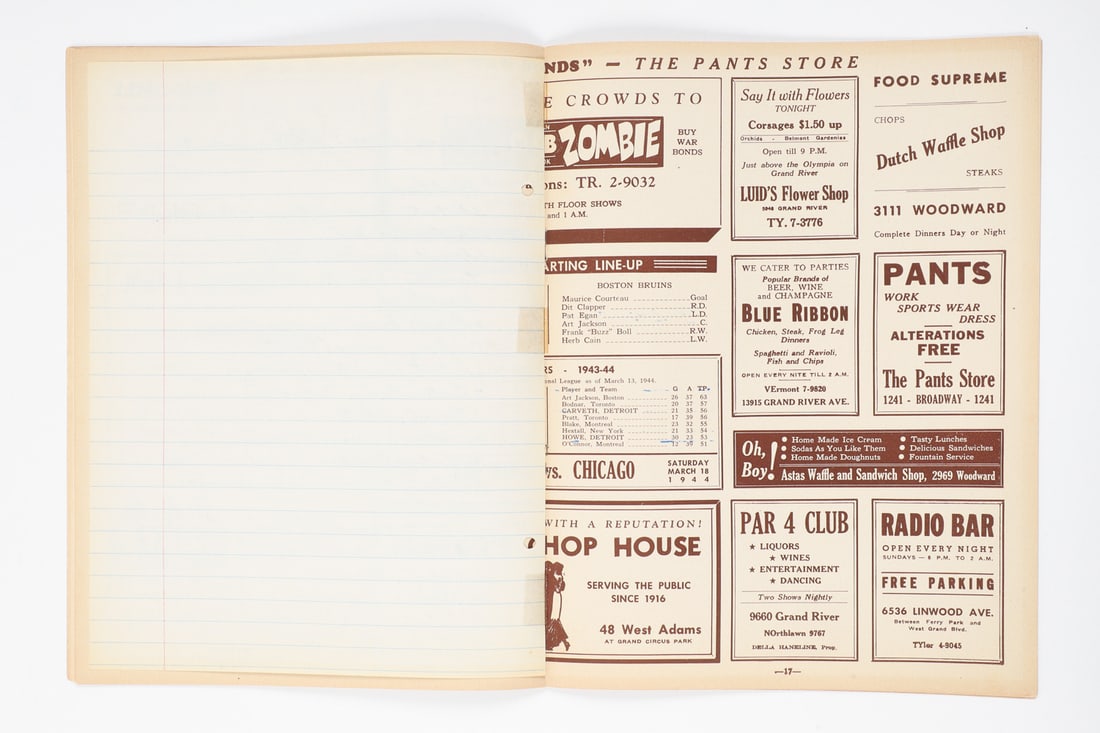 NDS" — THE PANTS STORE
E CROWDS TO
ZOMBIE
BUY
WAR
BONDS
ons: TR. 2-9032
TH FLOOR SHOWS
and 1 A.M.
ARTING LINE-UP
BOSTON BRUINS
Maurice Courteau Goal
Dit Clapper R.D.
Pat Egan L.D.
Art Jackson C.
Frank "Buzz" Boll R.W.
Herb Cain L.W.
RS - 1943-44
nal League as of March 13, 1944.
Player and Team G A TP.
Art Jackson, Boston 26 37 63
Bodnar, Toronto 20 37 57
CARVETH, DETROIT 21 35 56
Pratt, Toronto 17 39 56
Blake, Montreal 23 32 55
Hextall, New York 21 33 54
HOWE, DETROIT 30 23 53
O'Connor, Montreal 12 39 51
vs. CHICAGO
SATURDAY
MARCH 18
1944
WITH A REPUTATION!
HOP HOUSE
SERVING THE PUBLIC
SINCE 1916
48 West Adams
AT GRAND CIRCUS PARK
Say It with Flowers
TONIGHT
Corsages $1.50 up
Orchids - Belmont Gardenias
Open till 9 P.M.
Just above the Olympia on
Grand River
LUID'S Flower Shop
GRAND RIVER
TY. 7-3776
FOOD SUPREME
CHOPS
Dutch Waffle Shop
STEAKS
3111 WOODWARD
Complete Dinners Day or Night
WE CATER TO PARTIES
Popular Brands of
BEER, WINE
and CHAMPAGNE
BLUE RIBBON
Chicken, Steak, Frog Leg
Dinners
Spaghetti and Ravioli,
Fish and Chips
OPEN EVERY NITE TILL 2 A.M.
VErmont 7-9820
13915 GRAND RIVER AVE.
PANTS
WORK
SPORTS WEAR
DRESS
ALTERATIONS
FREE
The Pants Store
1241 - BROADWAY - 1241
Oh,
Boy!
Home Made Ice Cream
Sodas As You Like Them
Home Made Doughnuts
Tasty Lunches
Delicious Sandwiches
Fountain Service
Astas Waffle and Sandwich Shop, 2969 Woodward
PAR 4 CLUB
★ LIQUORS
★ WINES
★ ENTERTAINMENT
★ DANCING
Two Shows Nightly
9660 Grand River
NOrthlawn 9767
DELLA HANELINE, Prop.
RADIO BAR
OPEN EVERY NIGHT
SUNDAYS — 6 P.M. TO 2 A.M.
FREE PARKING
6536 LINWOOD AVE.
Between Ferry Park and
West Grand Blvd.
TYler 4-9045
—17—